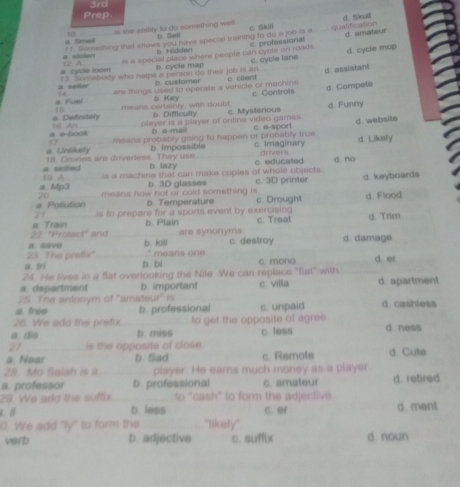 3rd
Prep.
10. ............ is the ability to do something well
a. Smell b. Sell c. Skill d. Skull
11. Something that shows you have special training to do a job is a ............ qualification
a. stolen b. Hidden c. professional d. amateur
12. A ............ is a special place where people can cycle on roads
a. cycle room b. cycle map c. cycle lane d. cycle mop
13. Somebody who helps a person do their job is an ............
a. seller b. customer c. client d. assistant
14. ............ are things used to operate a vehicle or machine.
a. Fuel b. Key c. Controls d. Compete
15. ............ means certainly, with doubt.
a. Definitely b. Difficulty c. Mysterious d. Funny
16. An ............ player is a player of online video games.
a. e-book b. e-mail c. e-sport d. website
17. ............ means probably going to happen or probably true.
a. Unlikely b. Impossible c. Imaginary d. Likely
18. Drones are driverless. They use ............ drivers.
a. skilled b. lazy c. educated d. no
19. A ............ is a machine that can make copies of whole objects.
a. Mp3 b. 3D glasses c. 3D printer d. keyboards
20. ............ means how hot or cold something is.
a. Pollution b. Temperature c. Drought d. Flood
21. ............ is to prepare for a sports event by exercising.
a. Train b. Plain c. Treat d. Trim
22. "Protect" and ............ are synonyms.
a. save b. kill c. destroy d. damage
23. The prefix" ............ " means one.
a. tri b. bi c. mono d. er
24. He lives in a flat overlooking the Nile. We can replace "flat" with ............
a. department b. important c. villa d. apartment
25. The antonym of "amateur" is ............
a. free b. professional c. unpaid d. cashless
26. We add the prefix ............ to get the opposite of agree.
a. dis b. miss c. less d. ness
27. ............ is the opposite of close.
a. Near b. Sad c. Remote d. Cute
28. Mo Salah is a ............ player. He earns much money as a player.
a. professor b. professional c. amateur d. retired
29. We add the suffix ............ to "cash" to form the adjective.
b. less c. er d. ment
0. We add "ly" to form the ............ "likely".
verb b. adjective c. suffix d. noun